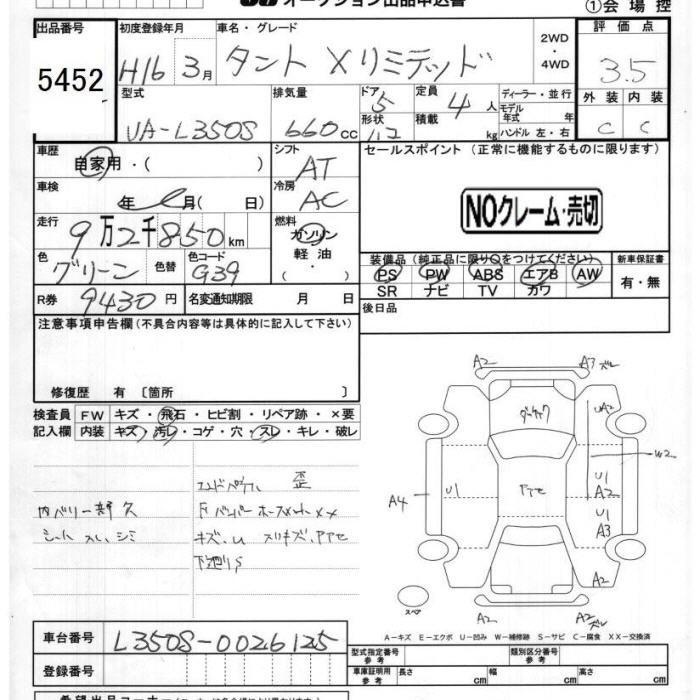 オークション出品申込書
①会場控
出品番号 初度登録年月 車名・グレード 2WD・4WD 評価点
5452 H16 3月 タント Xリミテッド 3.5
型式 排気量 ドア 5 定員 4人 ディーラー・並行 外装 内装
UA-L350S 660cc 形状 積載 kg モデル年式 年式 ハンドル 左・右 C C
車歴 自家用・( ) シフト AT セールスポイント(正常に機能するものに限ります)
車検 年 月( 日) 冷房 AC
NOクレーム・売切
走行 9万2千850km 燃料 ガソリン 軽油・
色 グリーン 色替 色コード G39 装備品(純正品に限り○をつけてください) 新車保証書
PS PW ABS エアB AW 有・無
SR ナビ TV カワ
R券 9430円 名変通知期限 月 日 後日品
注意事項申告欄(不具合内容等は具体的に記入して下さい)
修復歴 有〔箇所 〕
検査員 FW キズ・飛石・ヒビ割・リペア跡・×要
記入欄 内装 キズ・汚レ・コゲ・穴・スレ・キレ・破レ
A2 A3
UA2
W2
A4 U1 U1
A2
U1
A3
A2 A2
スペア
シート スレ、シミ
A-キズ E-エクボ U-凹み W-補修跡 S-サビ C-腐食 XX-交換済
車台番号 L350S-0026125 型式指定番号 参考 類別区分番号 参考
登録番号 車庫証明用 参考 長さ 幅 高さ